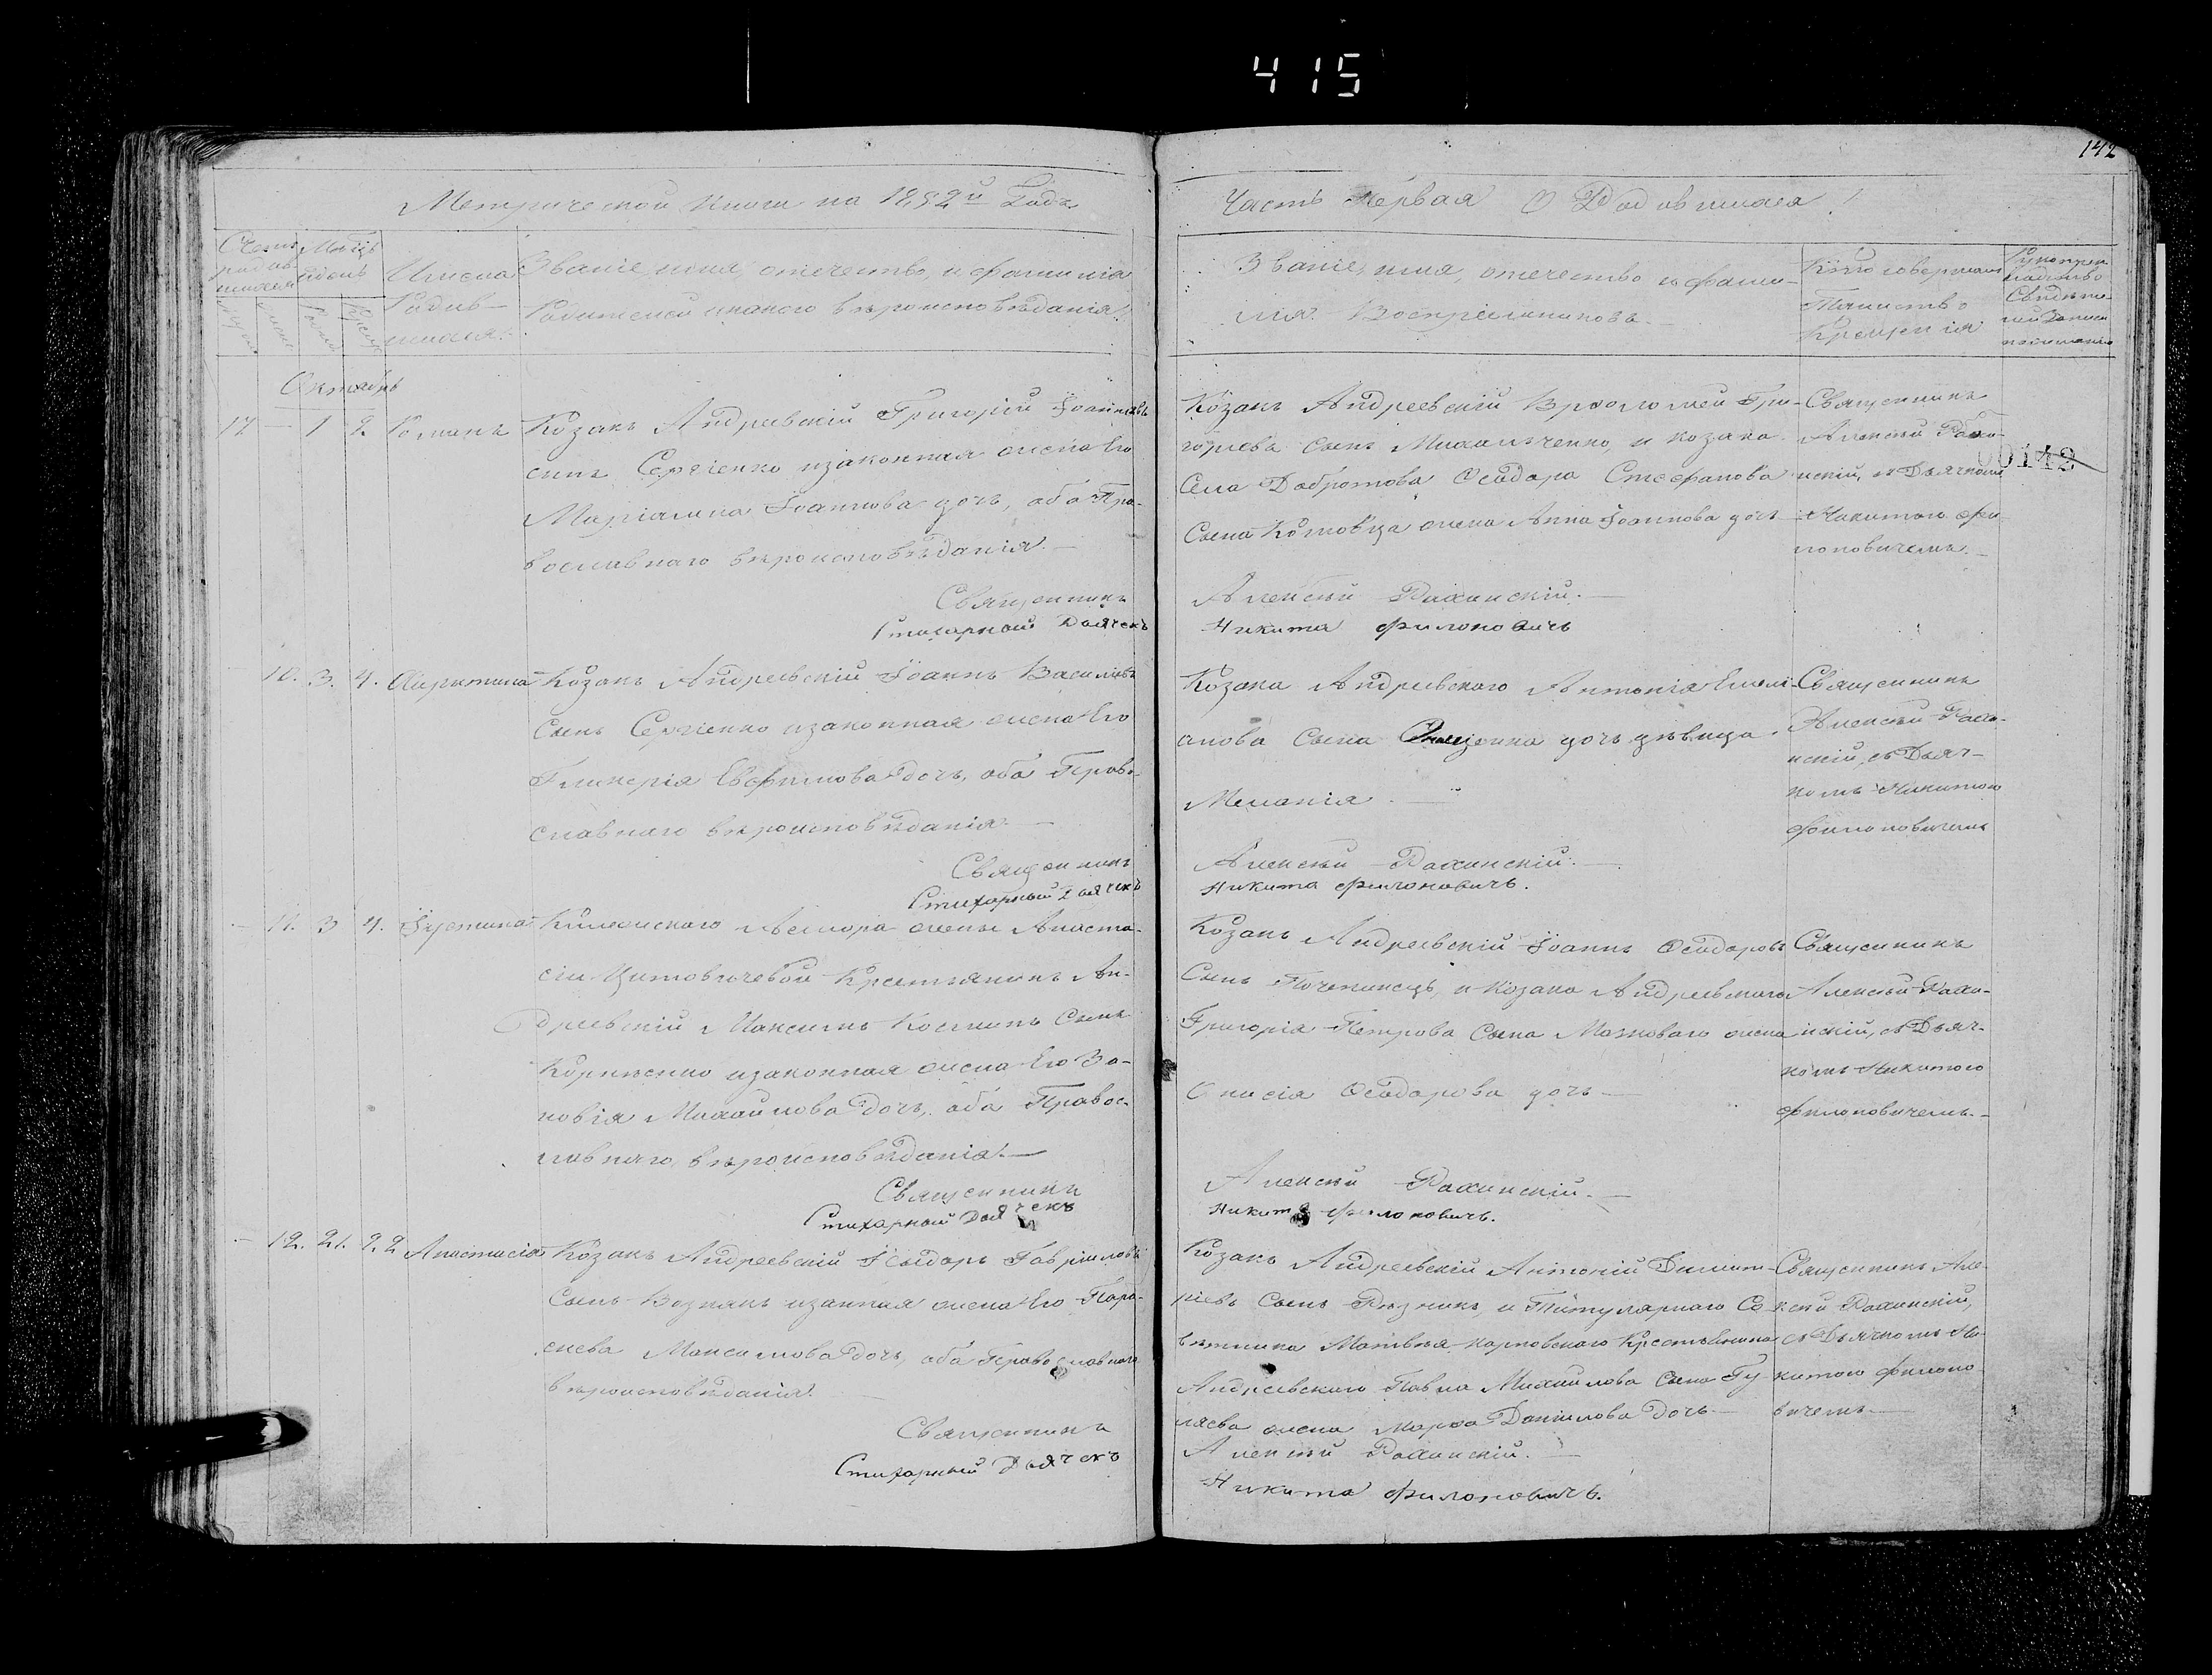 415
142
Метрической книги на 1852й Годъ
Часть Первая О Родившихся
Имена
Родив-
шихся.
Званіе, имя, отечество, и фамилія
Родителей и какого вѣроисповѣданія
Званіе, имя, отечество и фами-
лія Воспріемниковъ.
Кто совершалъ
Таинство
Крещенія
Октябрь
17 — 1 2 Романъ
Козакъ Андреевскій Григорій Іоанновъ
сынъ Сергіенко и законная жена Его
Маріамна Іоаннова дочь, оба Пра-
вославнаго вѣроисповѣданія.—
Священникъ
Стихарный Дьячекъ
Козакъ Андреевскій Врѳоломей Гри-
горьевъ сынъ Михальченко, и козака
Села Добротова Ѳеодора Стефанова
Сына жена Анна Іоаннова дочь
Алексѣй Рахинскій.—
Никита Филоновичъ
Священникъ
Алексѣй Рахи-
нскій, съ Дьячкомъ
Никитою Фи-
лоновичемъ.—
00142
— 10. 3. 4. Харитина
Козакъ Андреевскій Іоаннъ Василіевъ
Сынъ Сергіенко и законная жена Его
Гликерія Евфимова дочь, оба Право-
славнаго вѣроисповѣданія.—
Священникъ
Стихарный Дьячекъ
Козака Андреевскаго Антонія Емелі-
анова Сына дочь дѣвица
Меланія.—
Алексѣй Рахинскій.—
Никита Филоновичъ.
Священникъ
Алексѣй Рахи-
нскій, съ Дьяч-
комъ Никитою
Филоновичемъ
— 11. 3 4. Іустина
жены Анаста-
сіи Цитовичевой Крестьянинъ Ан-
дреевскій Максимъ Косминъ Сынъ
Корнѣенко и законная жена Его Зи-
новія Михайлова Дочь, оба Правос-
лавнаго, вѣроисповѣданія.—
Священникъ
Стихарный Дьячекъ
Козакъ Андреевскій Іоаннъ Ѳеодоровъ
Сынъ Почепинецъ, и Козака Андреевскаго
Григорія Петрова Сына жена
Онисія Ѳеодорова дочь—
Алексѣй Рахинскій.—
Никита Филоновичъ.
Священникъ
Алексѣй Рахи-
нскій, съ Дьяч-
комъ Никитою
Филоновичемъ.—
— 12. 21. 22 Анастасія
Козакъ Андреевскій Ісидоръ Гавріиловъ
Сынъ Вознякъ и законная жена Его Пара-
скева Максимова Дочь, оба Православнаго
вѣроисповѣданія.
Священникъ
Стихарный Дьячекъ
Козакъ Андреевскій Антоній Димит-
ріевъ Сынъ Рѣзникъ, и Титулярнаго Со-
вѣтника Матвѣя Карповскаго Крестьянина
Андреевскаго Павла Михайлова Сына Гу-
ляева жена Марѳа Даніилова Дочь—
Алексѣй Рахинскій.—
Никита Филоновичъ.
Священникъ Але-
ксѣй Рахинскій,
съ Дьячкомъ Ни-
китою Филоно-
вичемъ.—